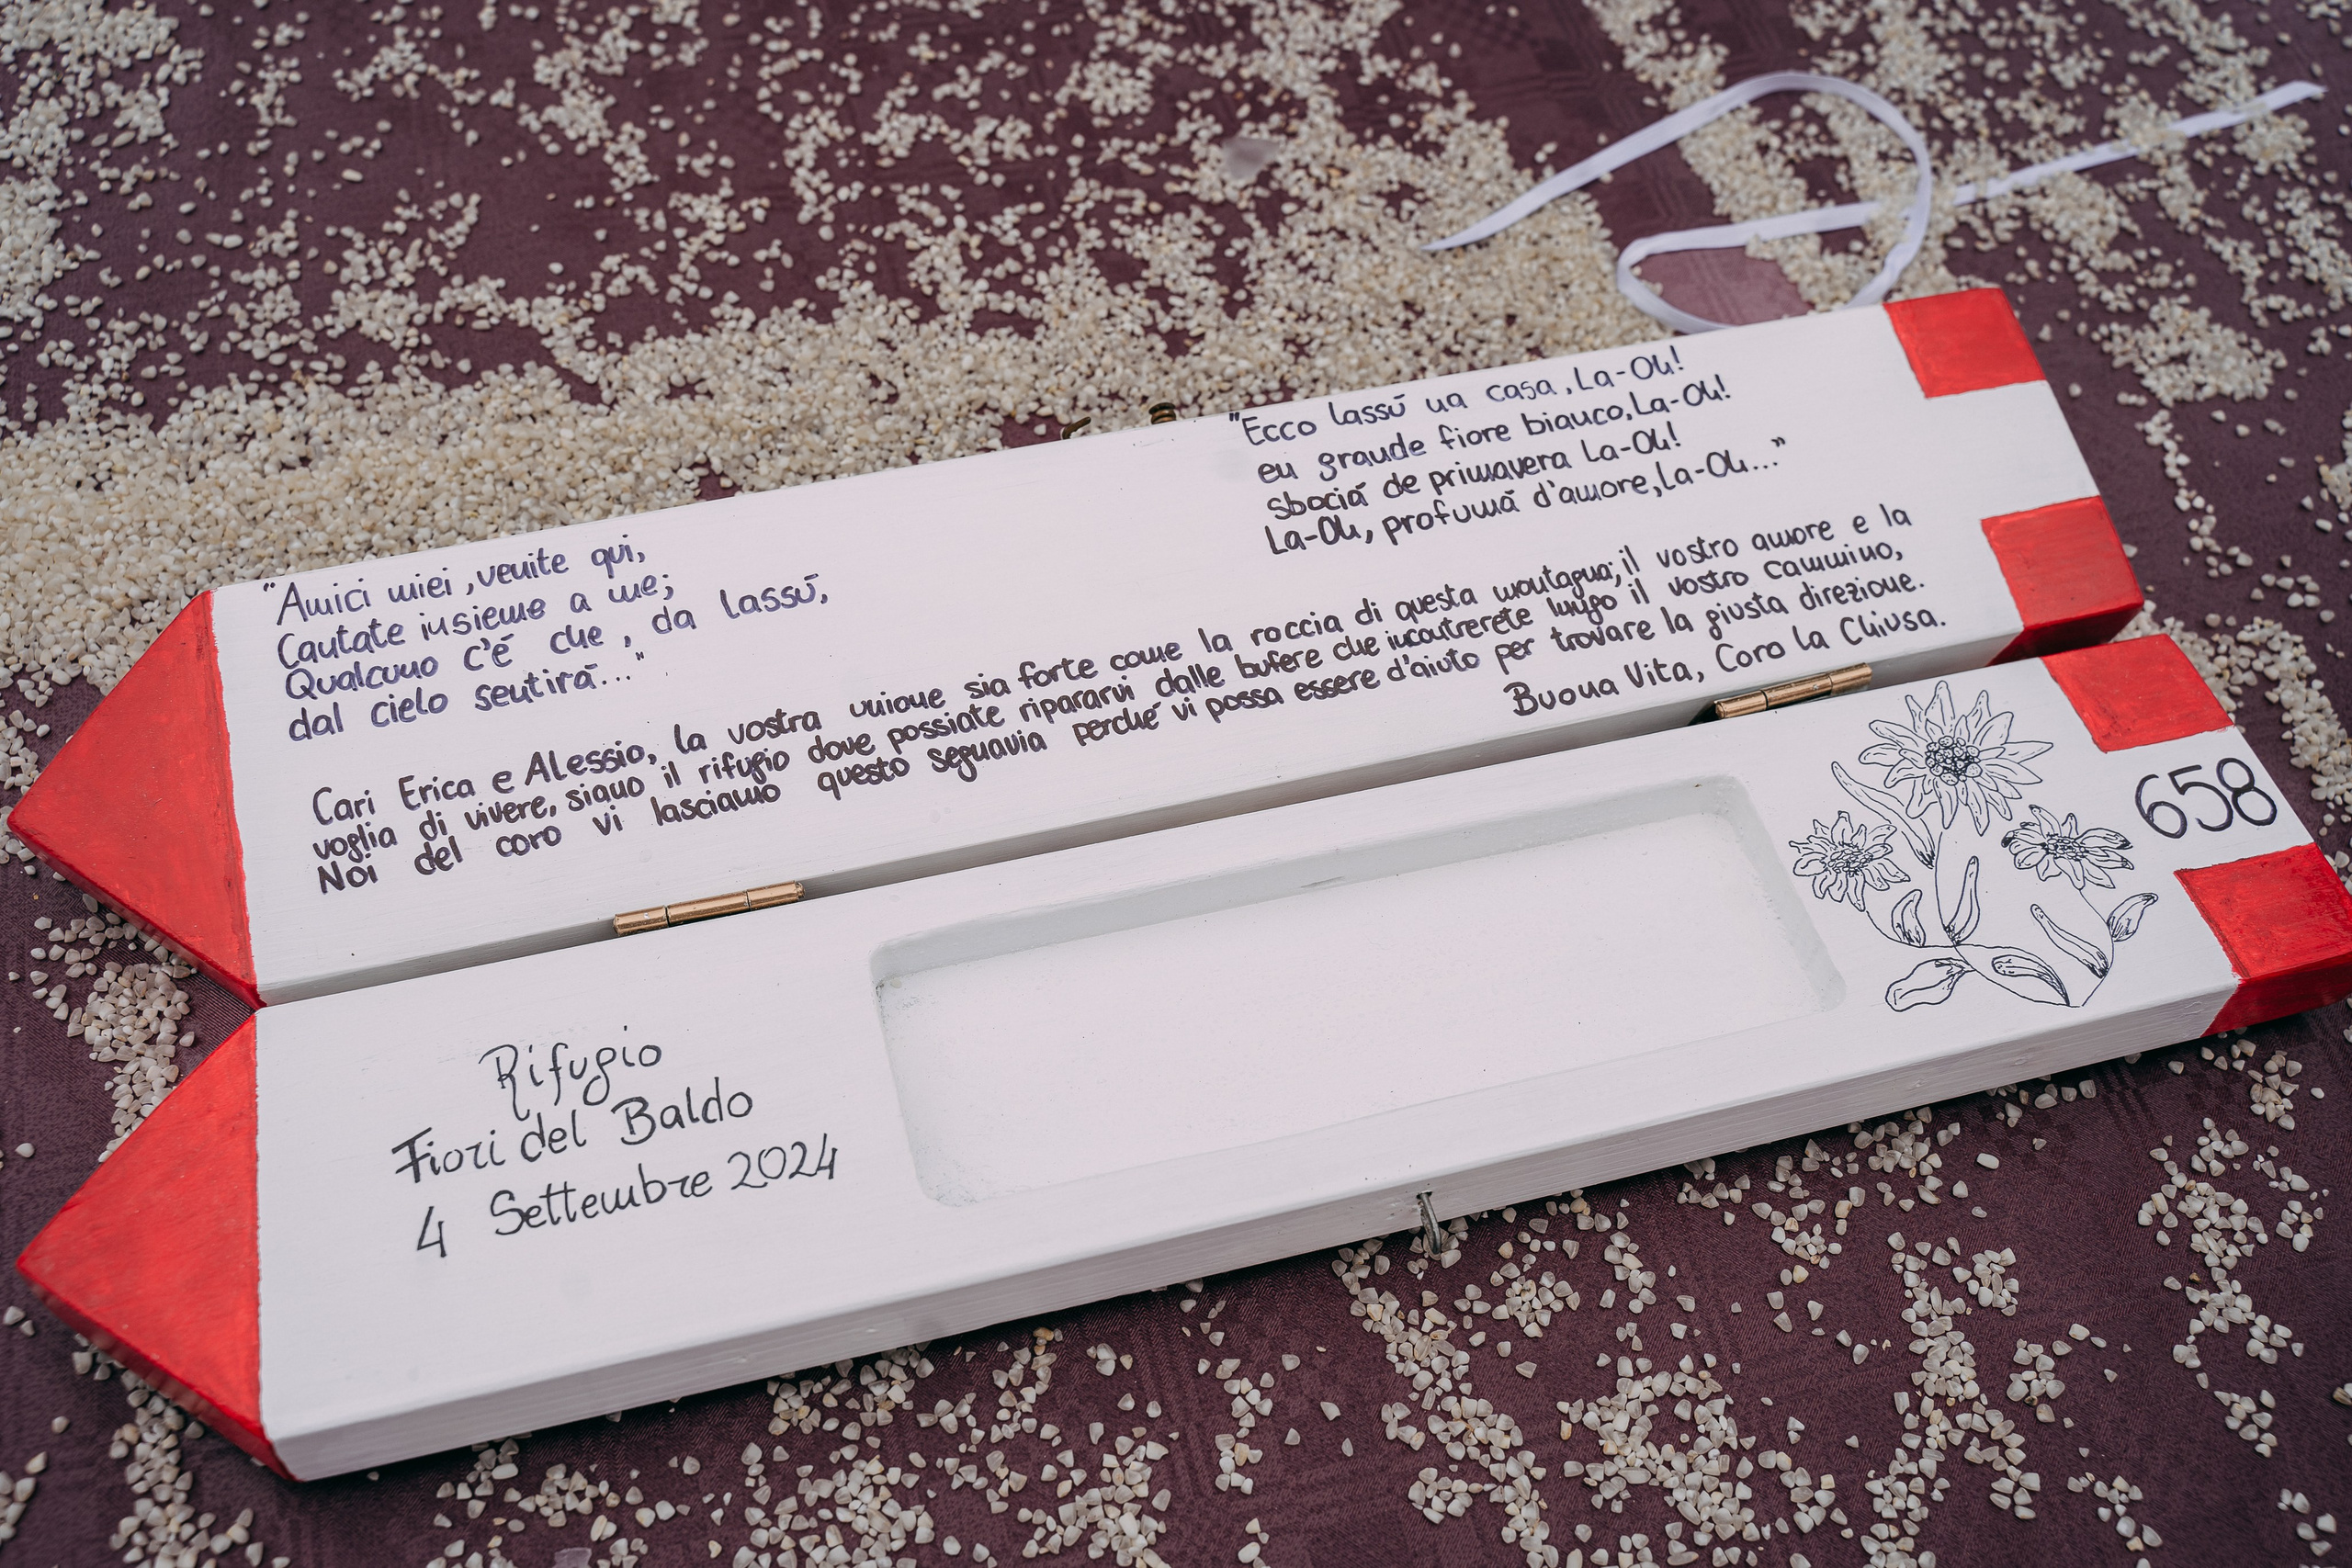 "Amici miei, venite qui,
Cantate insieme a me;
Qualcuno c'é che, da lassú,
dal cielo sentirá..."
"Ecco lassú na casa, La-Oh!
en grande fiore bianco, La-Oh!
sbociá de primavera La-Oh!
La-Oh, profumá d'amore, La-Oh..."
Cari Erica e Alessio, la vostra unione sia forte come la roccia di questa montagna; il vostro amore e la
voglia di vivere, siano il rifugio dove possiate ripararvi dalle bufere che incontrerete lungo il vostro cammino,
Noi del coro vi lasciamo questo segnavia perché vi possa essere d'aiuto per trovare la giusta direzione.
Buona Vita, Coro la Chiusa.
Rifugio
Fiori del Baldo
4 Settembre 2024
658